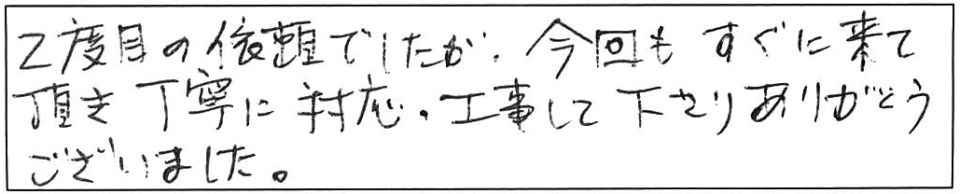 2度目の依頼でしたが、今回も すぐに来て
頂き 丁寧に 対応・工事して 下さり ありがとう
ございました。